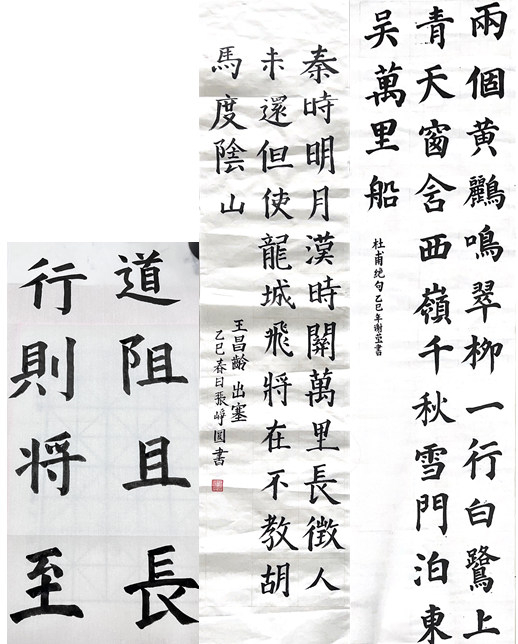 兩個黃鸝鳴翠柳一行白鷺上
青天窗含西嶺千秋雪門泊東
吳萬里船
杜甫绝句乙巳年谢莹書
秦時明月漢時關萬里長徵人
未還但使龍城飛將在不教胡
馬度陰山
王昌齡 出塞
乙巳春日張崢圓書
道阻且長
行則將至